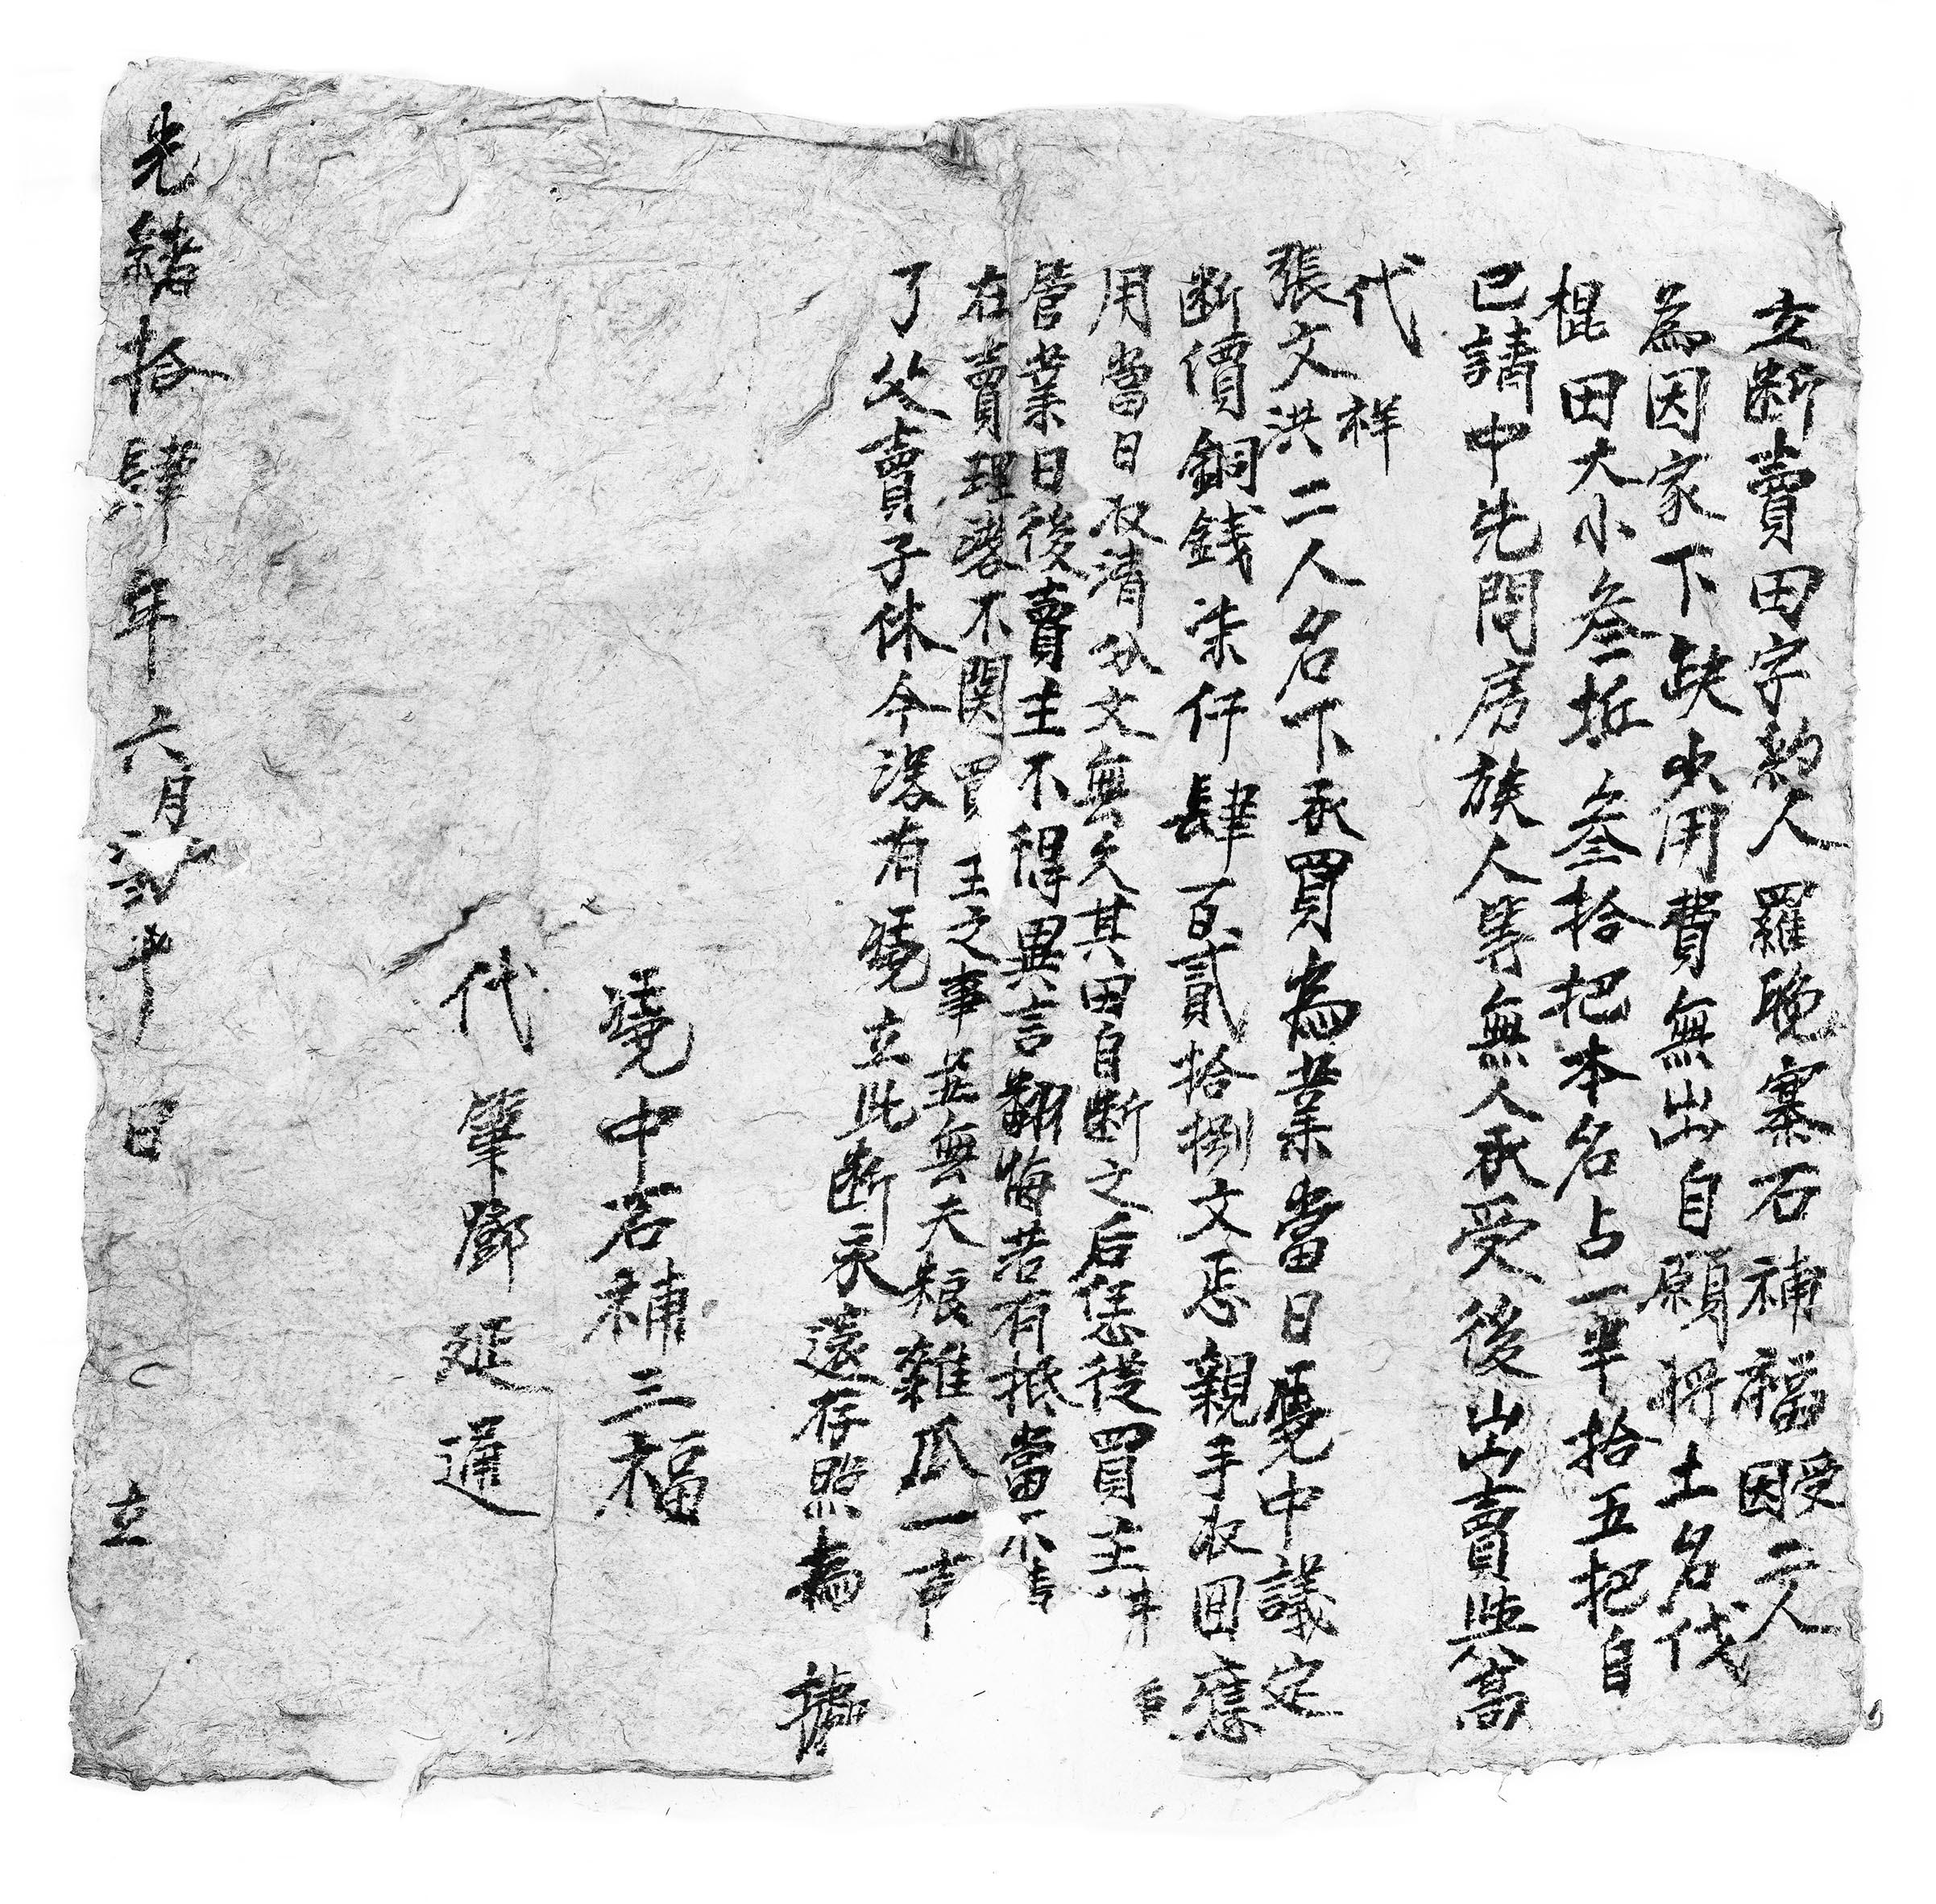 立斷賣田字契人羅晚寨石補福因受二人
為因家下缺少用費無出自願將土名伐
棍田大小叁坵叁拾把本名占一半拾五把自
已請中先問房族人等無人承受後出賣與高
代祥
張文洪二人名下承買為業當日凴中議定
斷價銅錢柒仟肆百貳拾捌文㤙親手收回應
用當日収清分文無欠其田自斷之后恁從買主
管業日後賣主不得異言翻悔若有抵當不
在賣理落不関買主之事並無夫粮雜瓜一
了父賣子休今沒有凴立此斷永遠存照為據
凴中石補三福
代筆鄧延通
光緒拾肆年六月日立